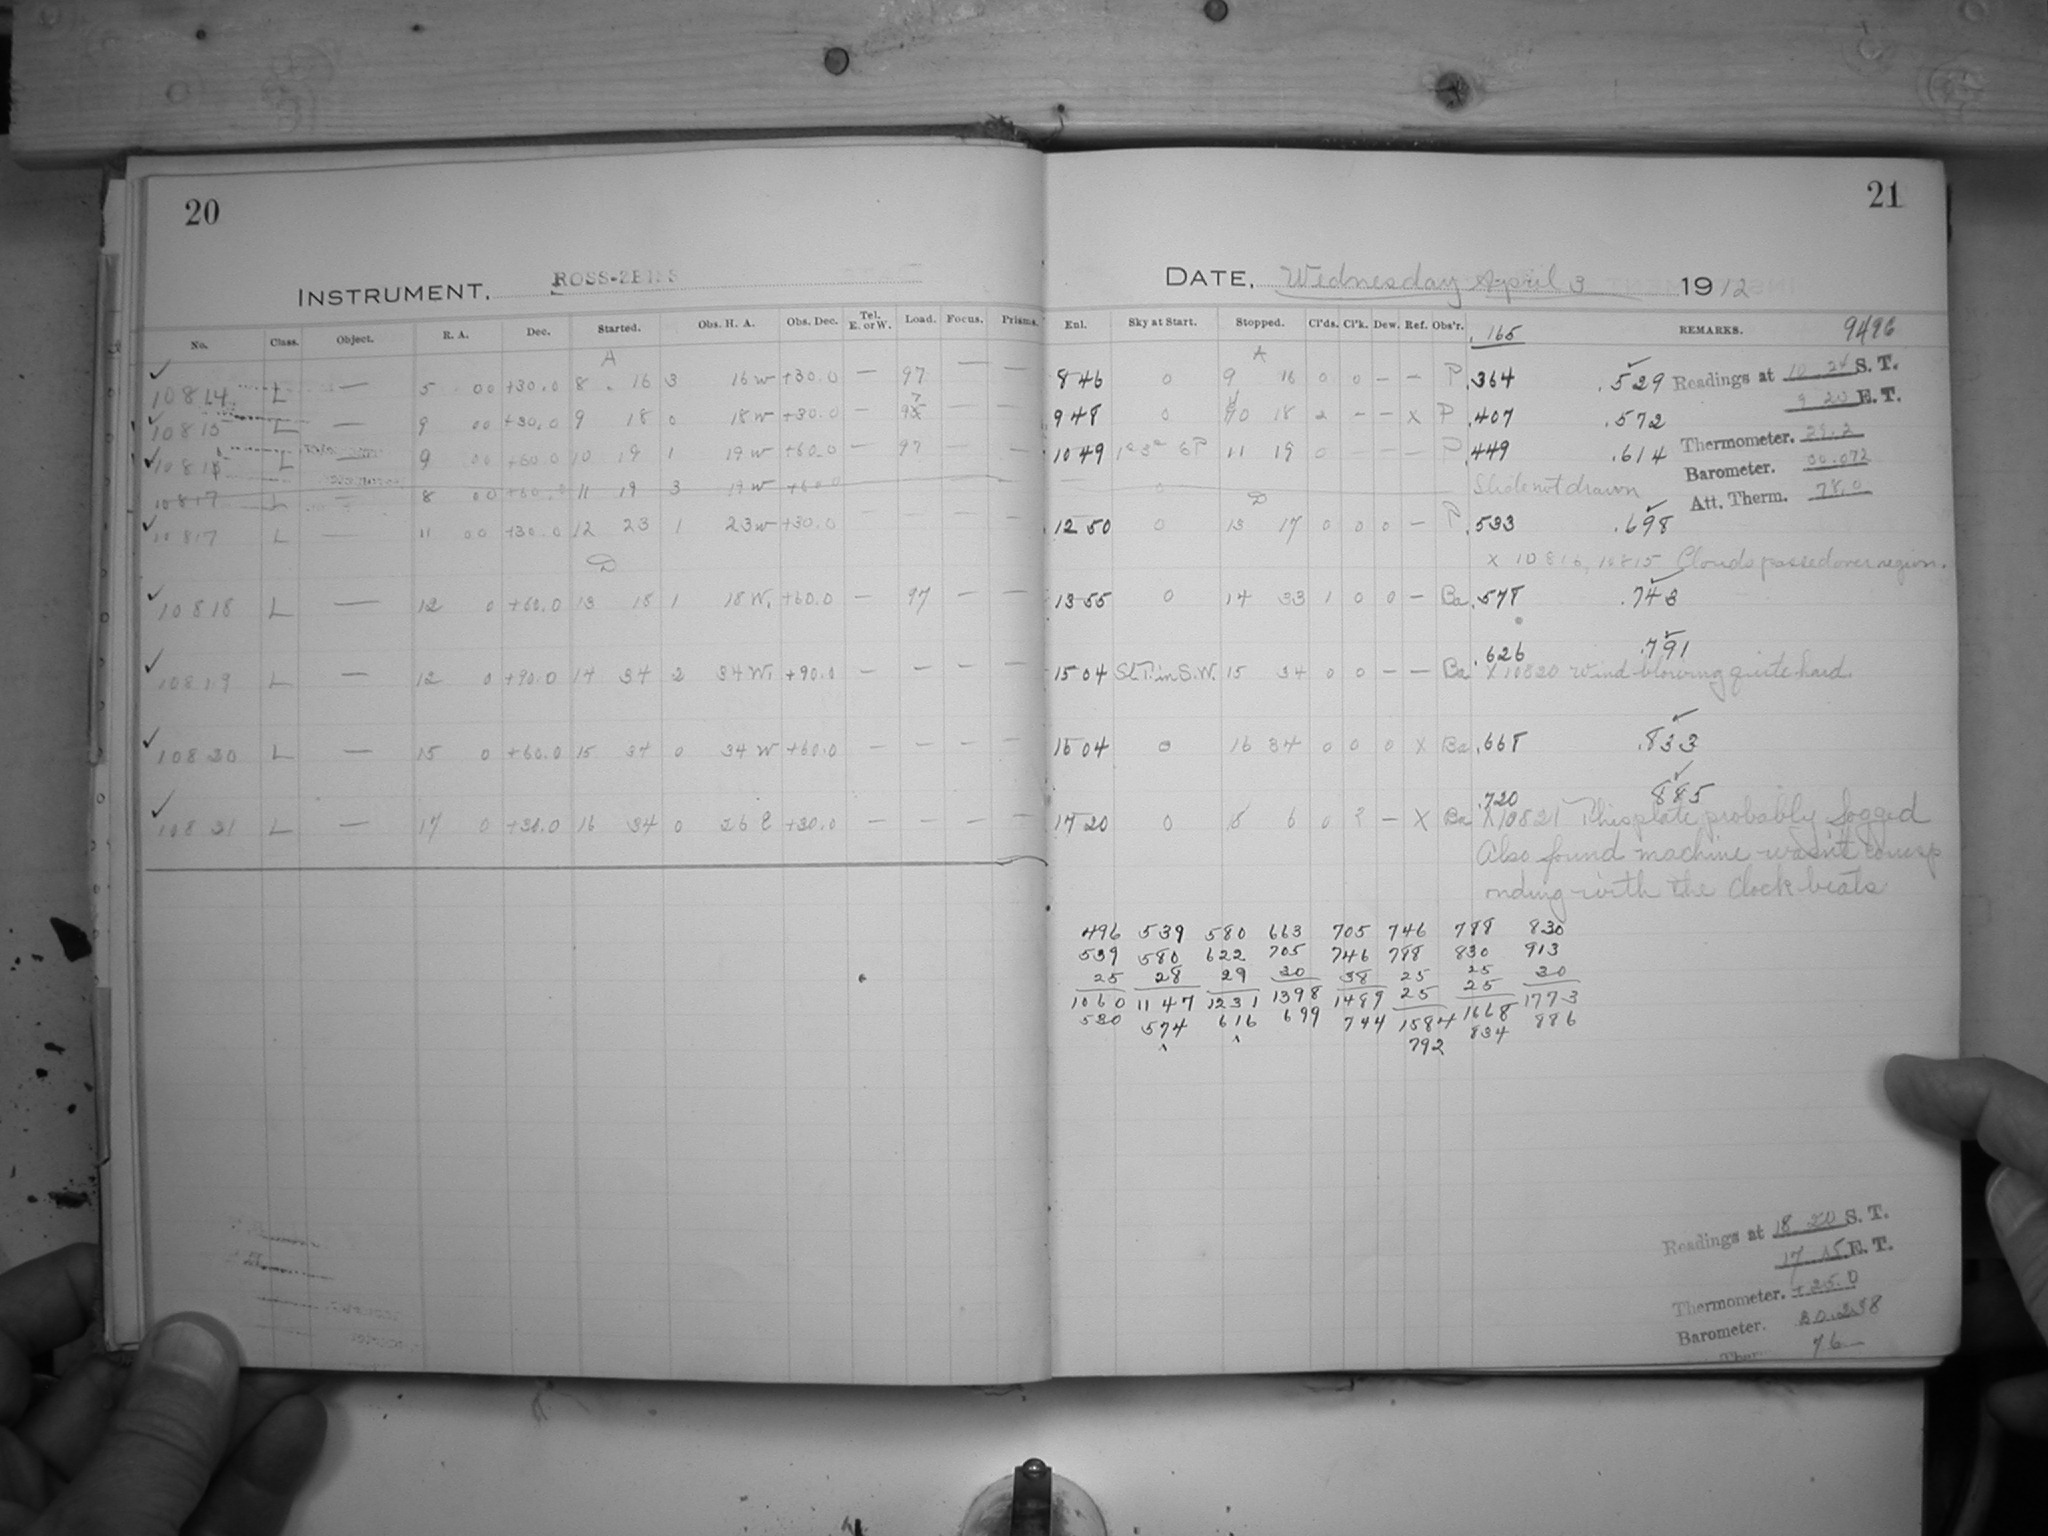 20
INSTRUMENT. ROSS-ZEISS
No. Class. Object. R. A. Dec. Started. Obs. H. A. Obs. Dec. Tel. E. or W. Load. Focus. Prisms.
A
✓ 10814 L — 5 00 +30.0 8 16 3 16 w +30.0 — 97 — —
10815 L — 9 00 +30.0 9 18 0 18 w +30.0 — 97 — —
✓ 10816 L — 9 00 +60.0 10 19 1 19 w +60.0 — 97 — —
10817 L — 8 00 +60.0 11 19 3 19 w +60.0
✓ 10817 L — 11 00 +30.0 12 23 1 23 w +30.0 — — — —
D
✓ 10818 L — 12 0 +60.0 13 18 1 18 W. +60.0 — 97 — —
✓ 10819 L — 12 0 +90.0 14 34 2 34 W. +90.0 — — — —
✓ 10820 L — 15 0 +60.0 15 34 0 34 W +60.0 — — — —
✓ 10821 L — 17 0 +30.0 16 34 0 26 E +30.0 — — — —
21
DATE, Wednesday April 3 1912
Enl. Sky at Start. Stopped. Cl'ds. Cl'k. Dew. Ref. Obs'r. .165 REMARKS. 9496
A
8 46 0 9 16 0 0 — — P .364 ✓ .529 Readings at 10 24 S. T.
9 20 E. T.
9 48 0 10 18 2 — — X P .407 .572
Thermometer. 29.2
10 49 11 19 0 — — — P .449 .614
Barometer. 30.072
0 Slide not drawn
Att. Therm. 78.0
D
12 50 0 13 17 0 0 0 — P .533 ✓ .698
X 10816, 10815 Clouds passed over region.
13 55 0 14 33 1 0 0 — Ba .578 ✓ .743
.626 ✓ .791
15 04 in S.W. 15 34 0 0 — — Ba X 10820 Wind blowing quite hard.
16 04 0 16 34 0 0 0 X Ba .668 ✓ .833
.720 ✓ 885
17 20 0 6 0 ? — X Ba X 10821 This plate probably fogged
Also found machine wasn't corresp
onding with the clock beats
496 539 580 663 705 746 788 830
539 580 622 705 746 788 830 913
25 28 29 30 38 25 25 30
1060 1147 1231 1398 1489 25 25 1773
530 574 616 699 744 1584 1668 886
792 834
Readings at 18 20 S. T.
17 15 E. T.
Thermometer. +25.0
Barometer. 30.238
Ther 76